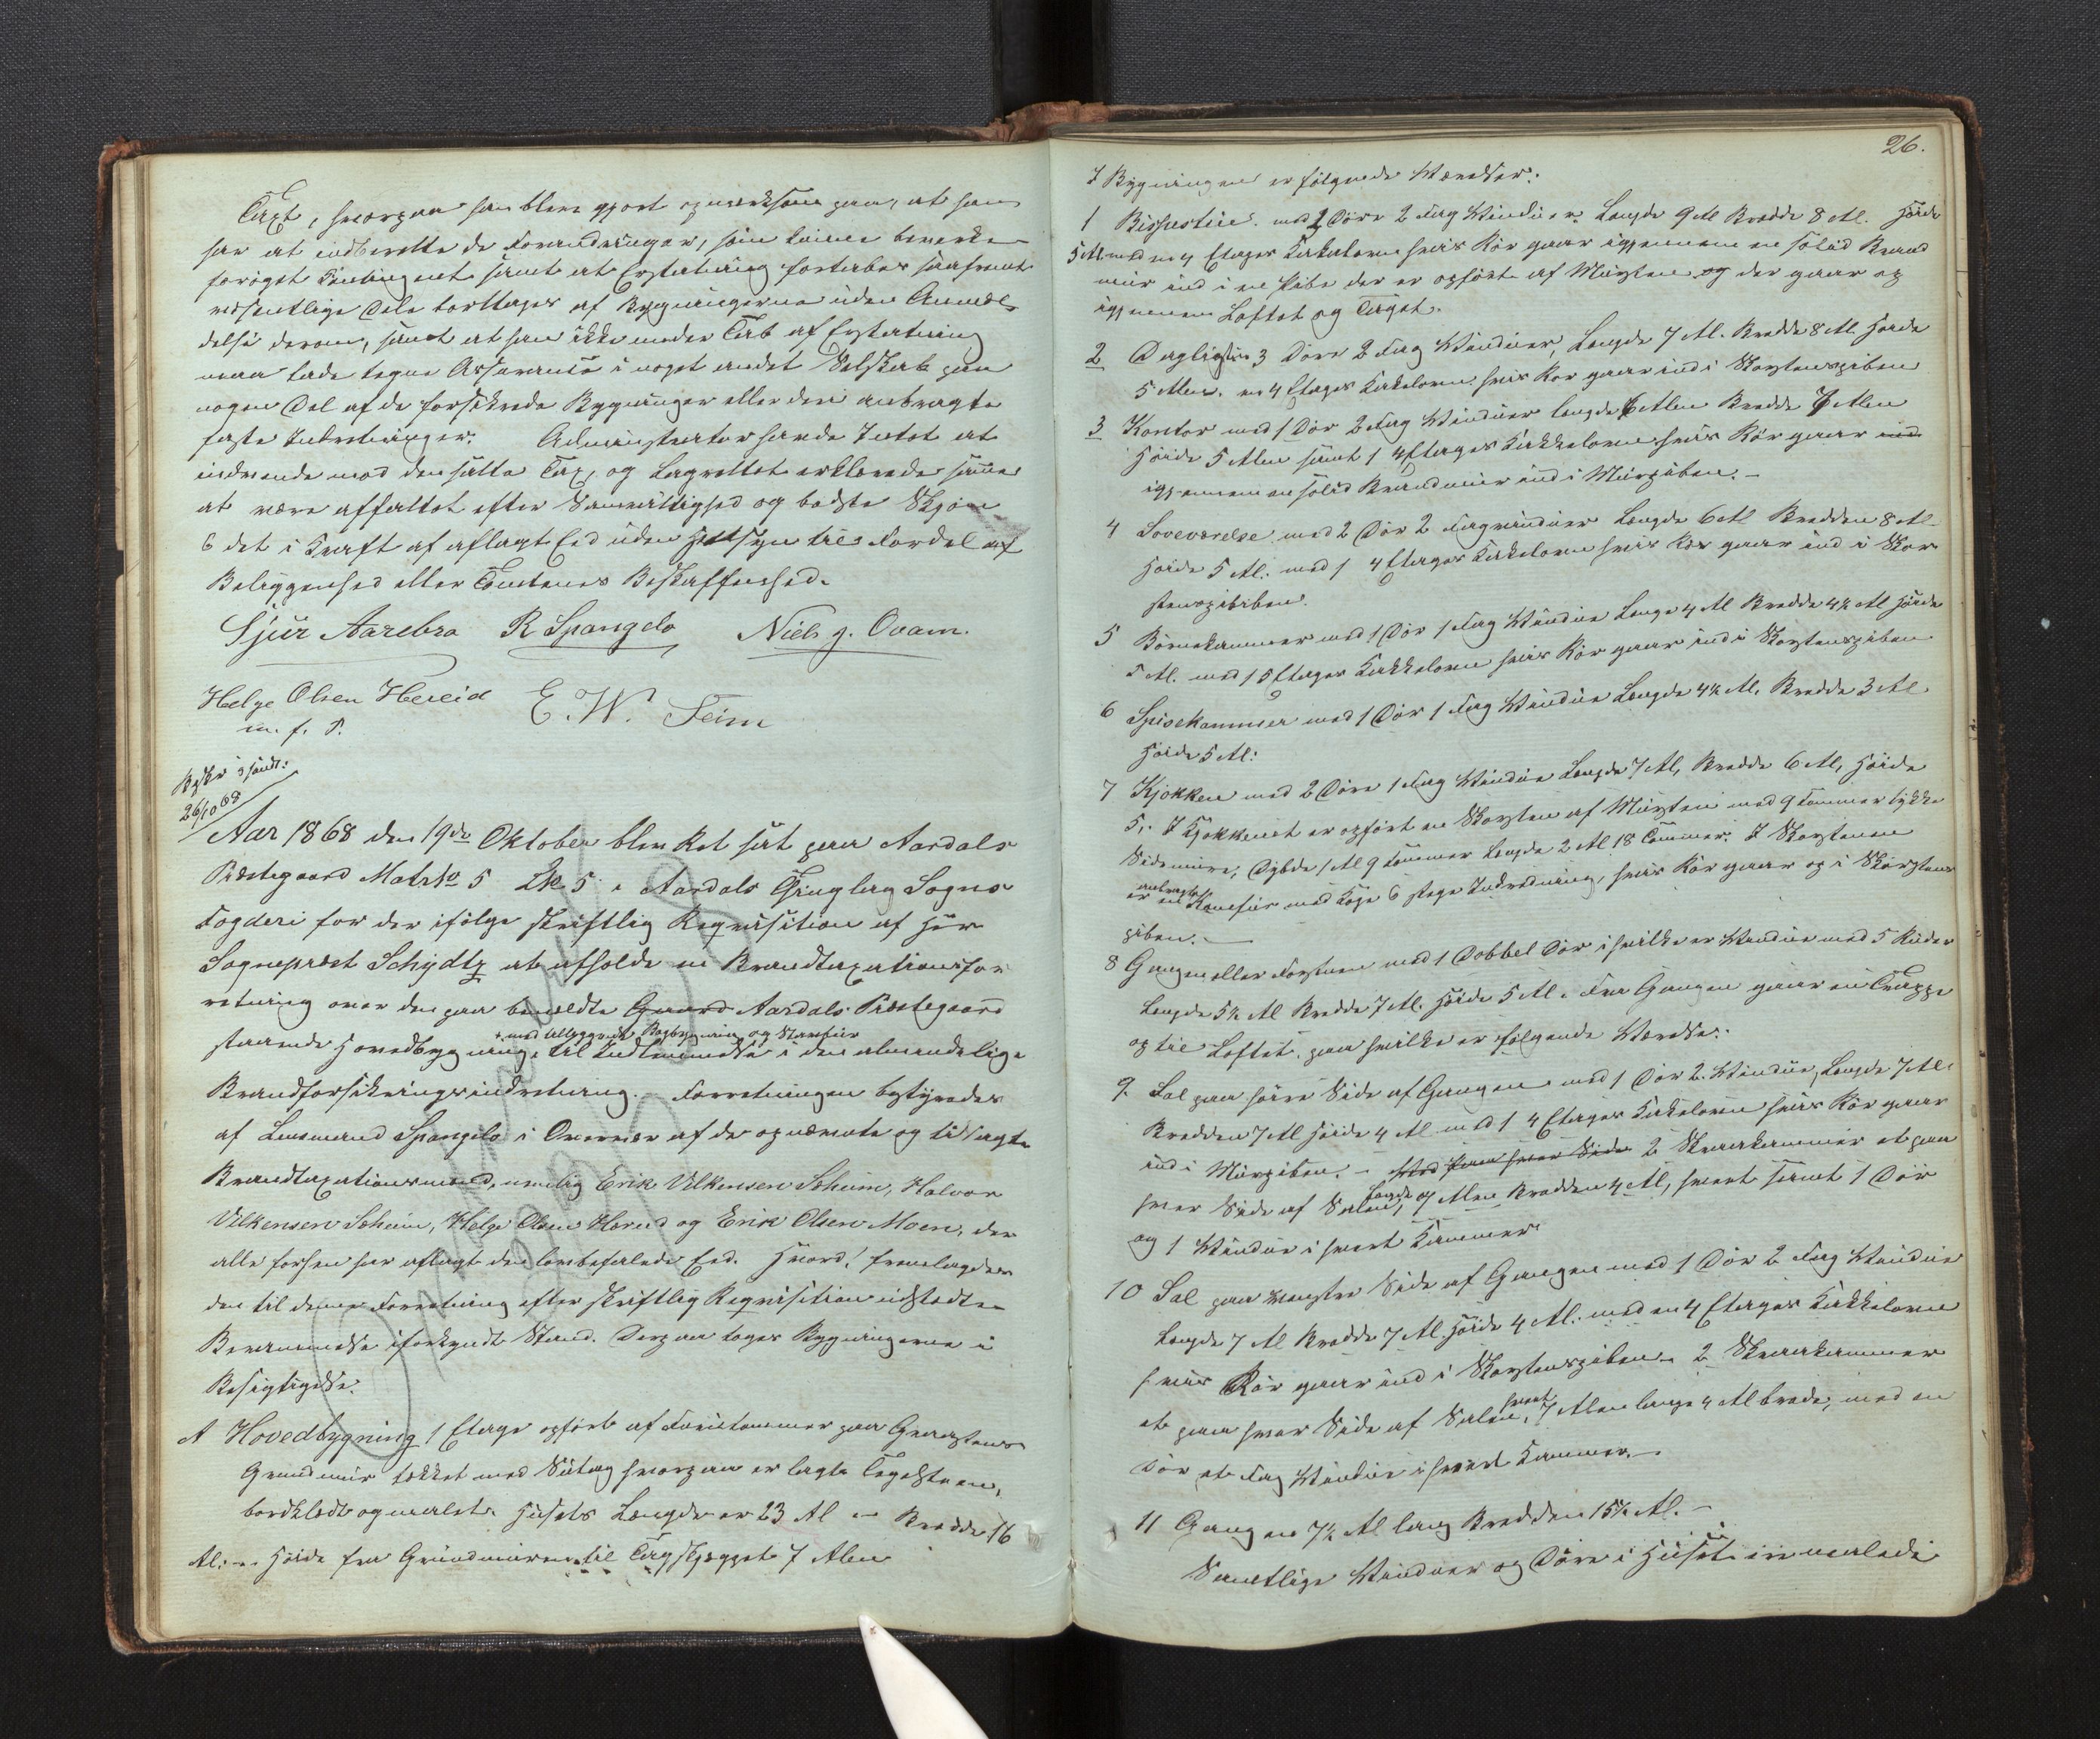 Taxt, hvorpaa han blev gjort opmærksom paa, at han
har at indberette de Forandringer, som kunne bevirke
forøget Contingent samt at Erstatning fortabes saafremt
væsentlige Dele borttages af Bygningerne uden Anmel-
delse derom, samt at han ikke under Tab af Erstatning
maa lade tegne Assurance i noget andet Selskab paa
nogen Del af de forsikrede Bygninger eller deri anbragte
faste Indretninger. Administrator havde Intet at
indvende mod den satte Taxt, og Lagrettet erklærede samme
at være affattet efter Samvittighed og bedste Skjøn
6 det i Kraft af aflagt Ed uden Hensyn til Fordel af
Beliggenhed eller Tomtenes Beskaffenhed.
Sjur Aarebro R Spangelo Niels J. Ovam.
Helge Olsen Hereid E. W. Seim
m. f. P.
Beskr. o sendt:
26/10 68
Aar 1868 den 19de Oktober blev Ret sat paa Aardals
Præstegaard Matr No 5 Lb 5 i Aardals Thinglag Sogns
Fogderi for der ifølge skriftlig Requisition af Hr
Sognepræst Schydtz at afholde en Brandtaxationsfor
retning over den paa bemeldte Gaard Aardals Præstegaard
+ med tilbyggende Bagbygning og
staaende Hovedbygning + til Indlemmelse i den almindelige
Brandforsikringsindretning. Forretningen bestyredes
af Lensmand Spangelo i Overvær af de opnævnte og tilsagte
Brandtaxationsmænd, nemlig Erik Vilkensen Seheim, Halvor
Vilkensen Seheim, Helge Olsen Hereid og Erik Olsen Moen, der
alle forhen har aflagt den lovbefalede Ed. Hvord! fremlagdes
den til denne Forretning efter skriftlig Requisition udstedte
Berammelse iforkyndt Stand. Derpaa toges Bygningerne i
Besigtigelse.
A Hovedbygning 1 Etage opført af Furutømmer paa Graastens
Grundmur tækket med Sutag hvorpaa er lagte Tegelsteen,
bordklædt og malet. Husets Længde er 23 Al – Bredde 16
Al: – Høide fra Grundmuren til Tagskjegget 7 Alen
26.
I Bygningen er følgende Værelser:
1 Bispestue med 2 Døre 2 Fag Vinduer Længde 9 Al Bredde 8 Al. Høide
5 Al. med en 4 Etages Kakelovn hvis Rør gaar igjennem en solid Brand
mur ind i en Pibe der er opført af Mursten og der gaar op
igjennem Loftet og Taget.
2 Dagligstue 3 Døre 2 Fag Vinduer, Længde 7 Al. Bredde 8 Al. Høide
5 Alen, en 4 Etages Kakelovn hvis Rør gaar ind i Skorstenspiben
3 Kontor med 1 Dør 2 Fag Vinduer længde 6 Alen Bredde 7 Alen
Høide 5 Alen samt 1 4 Etages Kakkelovn hvis Rør gaar ind
igjennem en solid Brandmur ind i Murpiben. –
4 Soveværelse med 2 Dør 2 Fag vinduer Længde 6 Al Bredden 8 Al
Høide 5 Al. med 1 4 Etages Kakelovn hvis Rør gaar ind i Skor
stenspibiben.
5 Børnekammer med 1 Dør 1 Fag Vindue Længe 4 Al Bredde 4½ Al Høide
5 Al. med 1 5 Etages Kakkelovn hvis Rør gaar ind i Skorstenspiben
6 Spisekammer med 1 Dør 1 Fag Vindue Længde 4½ Al. Bredde 3 Al
Høide 5 Al:
7 Kjøkken med 2 Døre 1 Fag Vindue Længde 7 Al, Bredde 6 Al, Høide
5,. I Kjøkkenet er opført en Skorsten af Mursten med 9 Tommer tykke
Sidemure, Dybde 1 Al 9 Tommer Længde 2 Al 18 Tommer. I Skorstenen
anbragt
er en Komfur med Koge 6 stege Indredning, hvis Rør gaar op i Skorstens
piben. –
8 Gangen eller Forstuen med 1 Dobbel Dør i hvilke er Vindue med 5 Ruder
Længde 5½ Al Bredde 7 Al. Høide 5 Al. Fra Gangen gaar en Trappe
op til Loftet, paa hvilke er følgende Værelse:
9. Sal paa høire Side af Gangen med 1 Dør 2. Vindue, Længde 7 Al.
Bredden 7 Al Høide 4 Al med 1 4 Etages Kakelovn hvis Rør gaar
ind i Murpiben. – Med paa hver Side 2 Skraakammer et paa
Længde
hver Side af Salen, 7 Alen Bredden 4 Al, hvert samt 1 Dør
og 1 Vindue i hvert Kammer
10 Sal paa venstre Side af Gangen med 1 Dør 2 Fag Vindue
Længde 7 Al Bredde 7 Al. Høide 4 Al. med en 4 Etages Kakkelovn
hvis Rør gaar ind i Skorstenspiben. 2 Skraakammer
hvert
et paa hver Side af Salen, 7 Alen lange 4 Al brede, med en
Dør et Fag Vindue i hvert Kammer. –
11 Gangen 7½ Al lang Bredden 15½ Al. –
Samtlige Vinduer og Døre i Huset ere malede